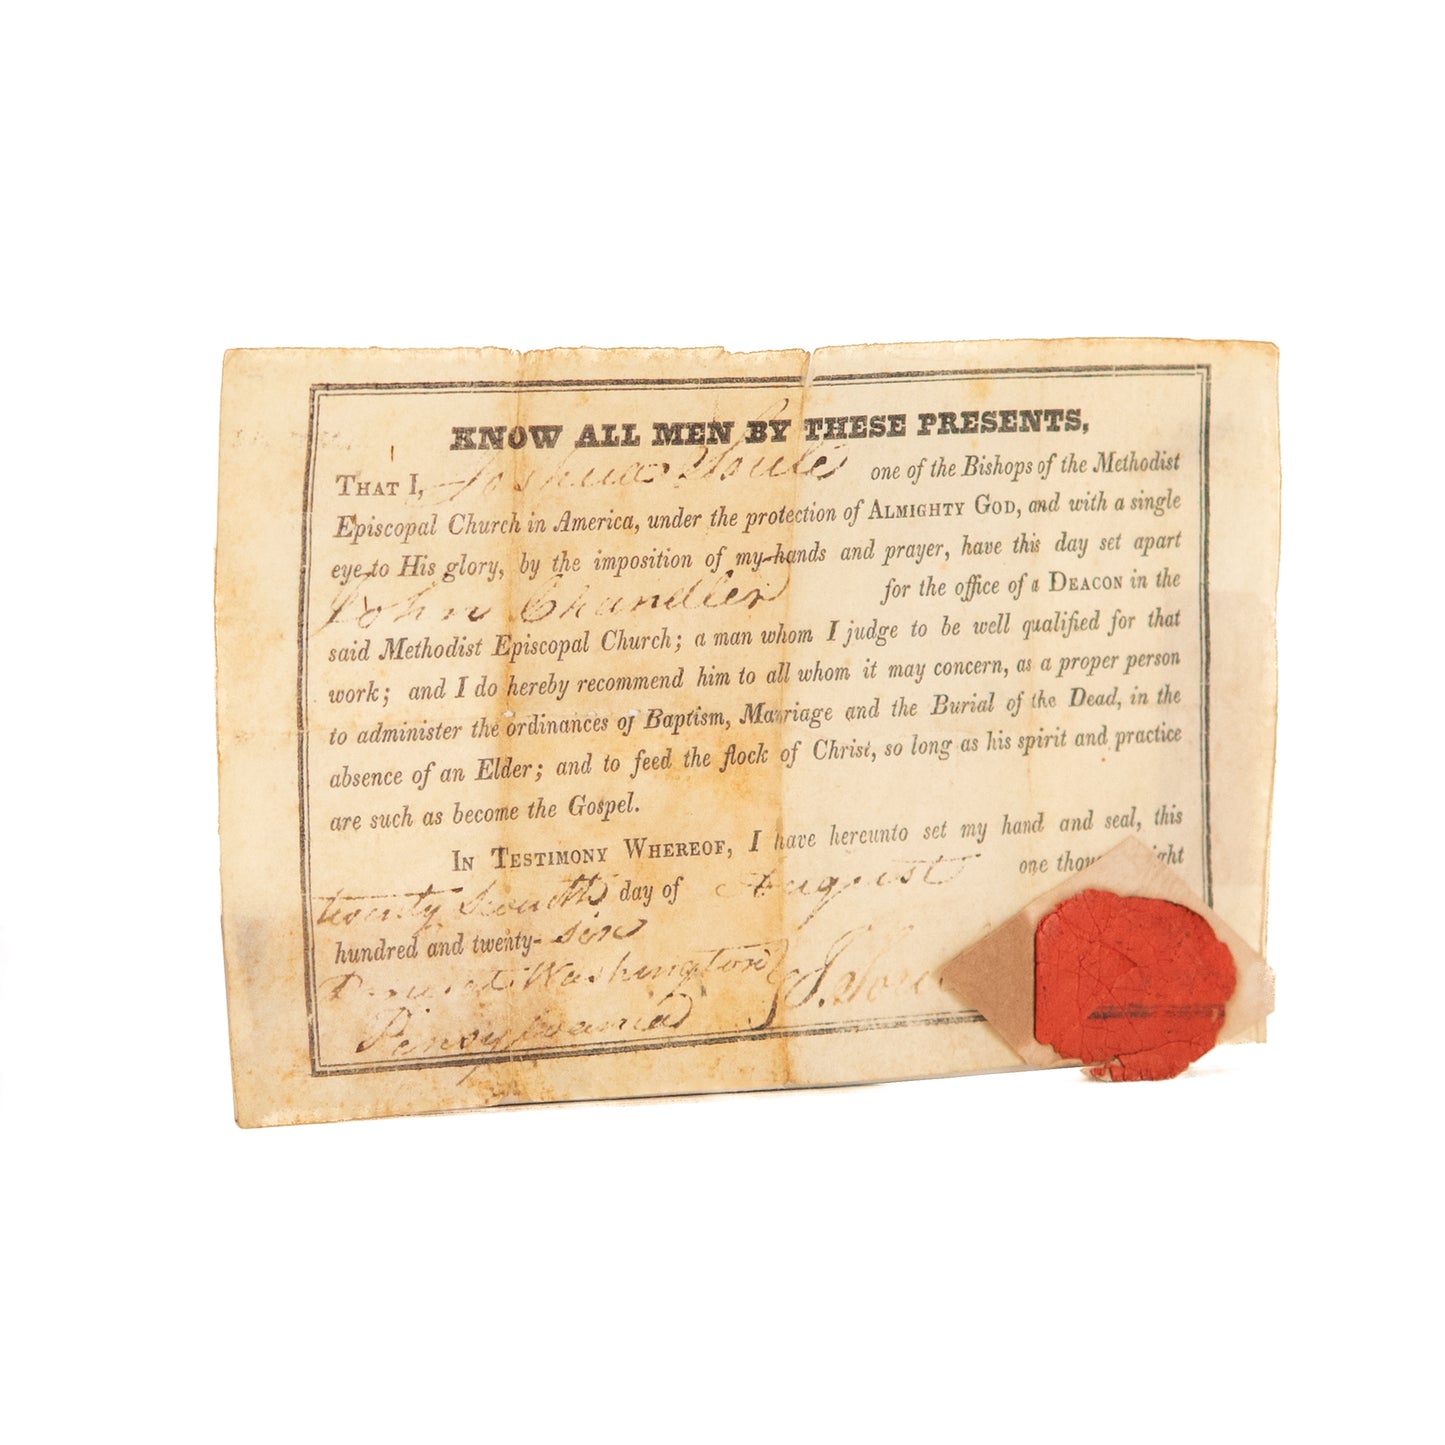 KNOW ALL MEN BY THESE PRESENTS,
THAT I, Joshua Soule one of the Bishops of the Methodist
Episcopal Church in America, under the protection of ALMIGHTY GOD, and with a single
eye to His glory, by the imposition of my hands and prayer, have this day set apart
John Chandler for the office of a DEACON in the
said Methodist Episcopal Church; a man whom I judge to be well qualified for that
work; and I do hereby recommend him to all whom it may concern, as a proper person
to administer the ordinances of Baptism, Marriage and the Burial of the Dead, in the
absence of an Elder; and to feed the flock of Christ, so long as his spirit and practice
are such as become the Gospel.
IN TESTIMONY WHEREOF, I have hereunto set my hand and seal, this
twenty day of August one ight
hundred and twenty- six
at Washington J. Sou
Pennsylvania